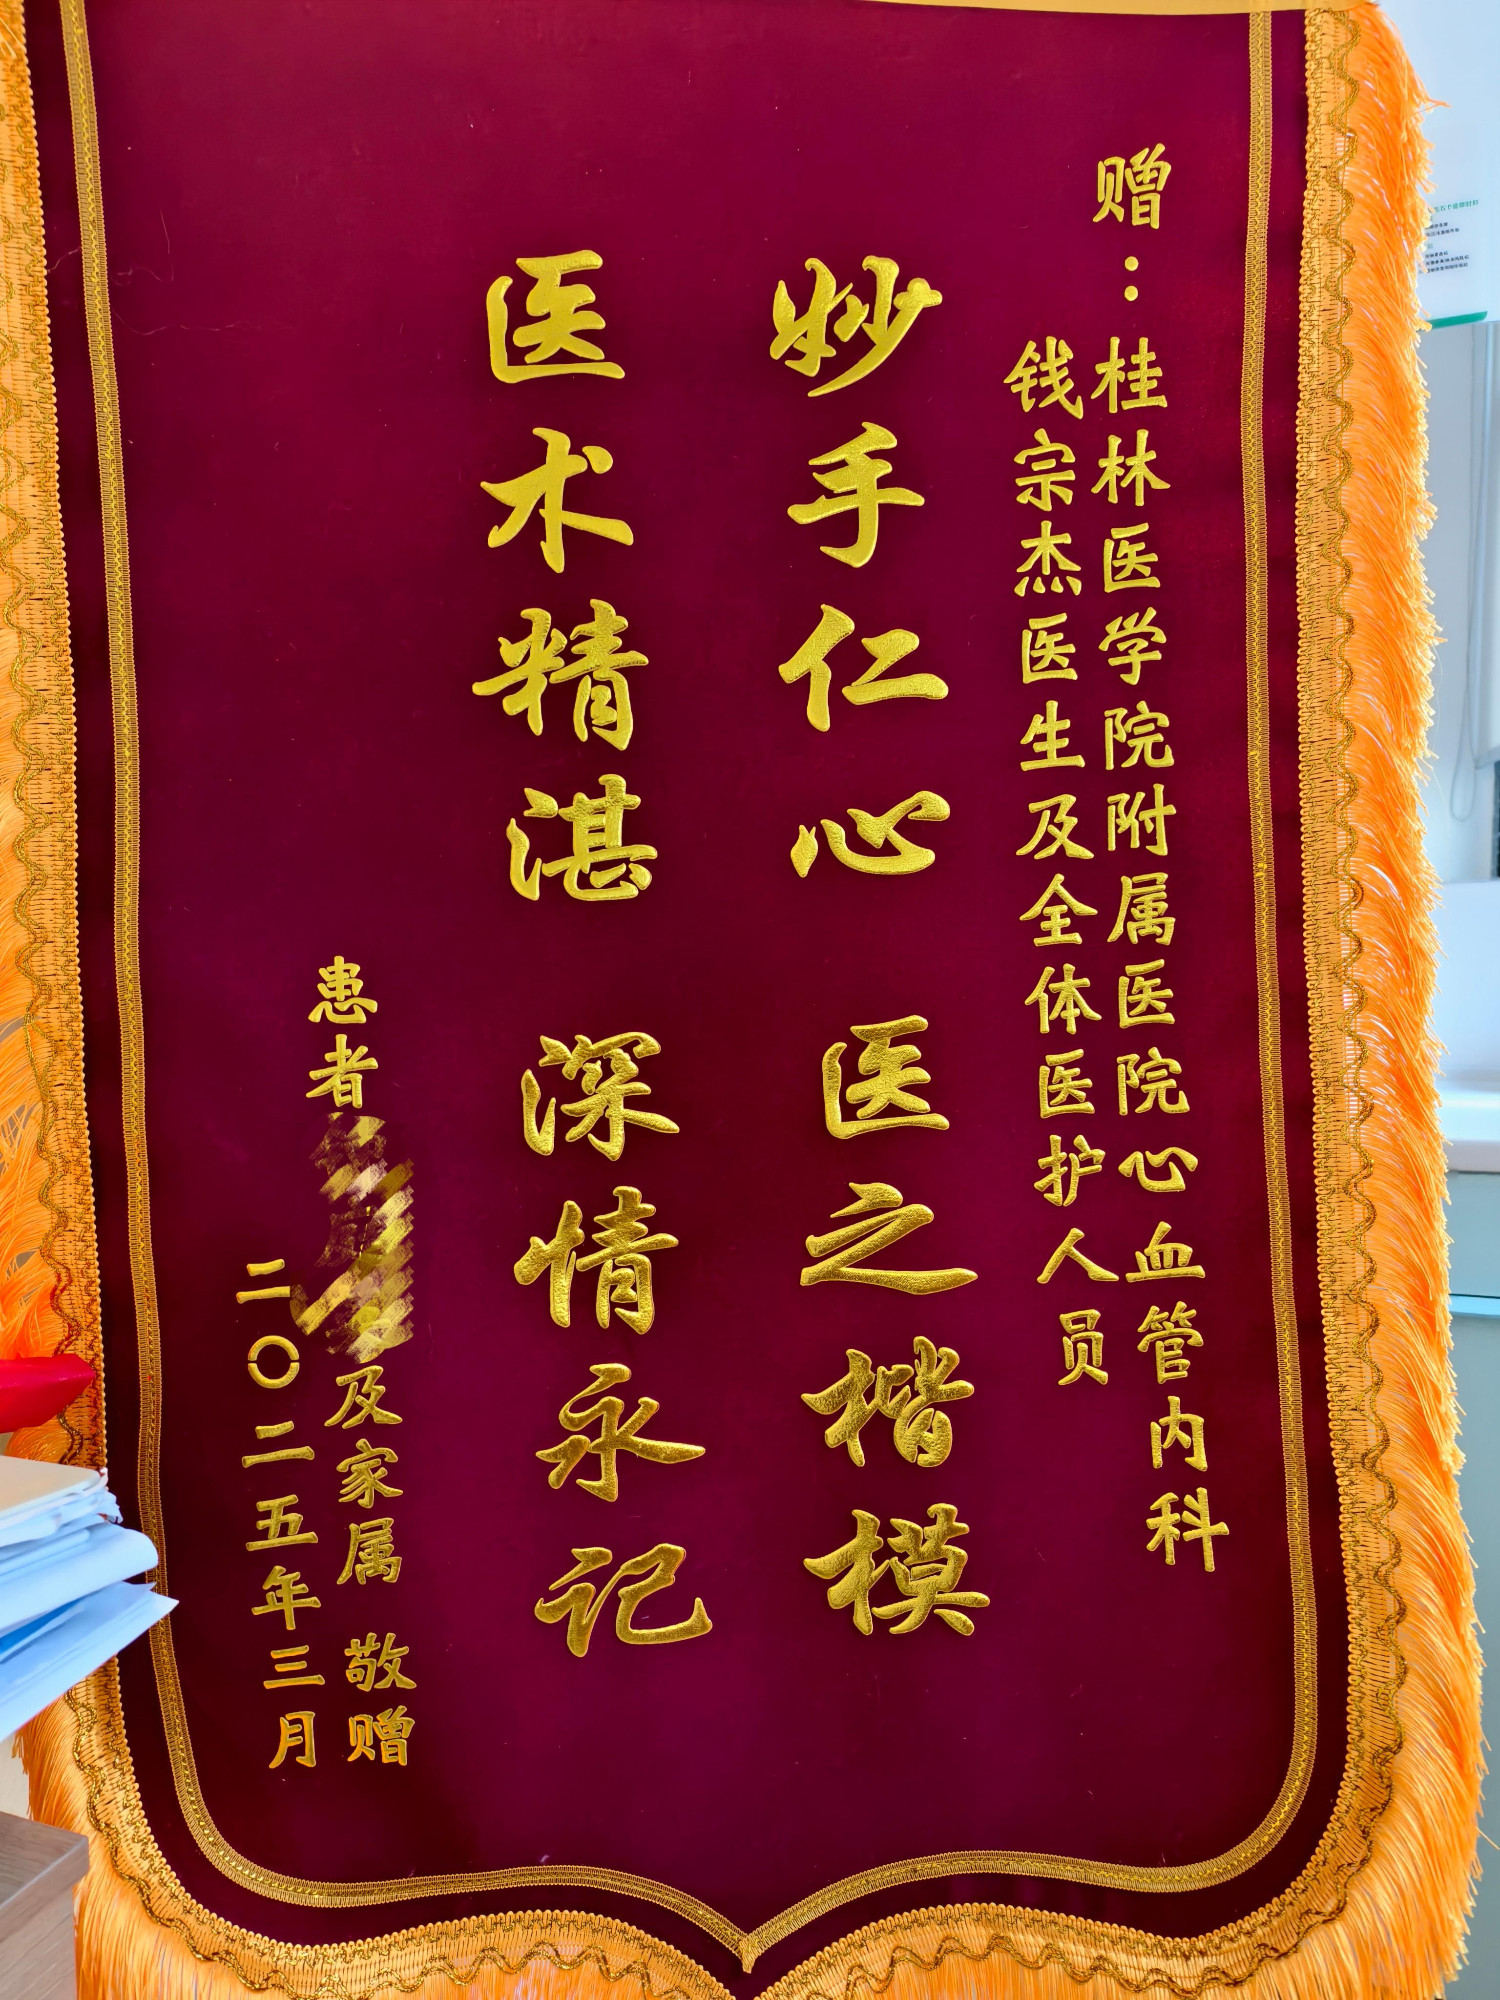 赠：桂林医学院附属医院心血管内科
钱宗杰医生及全体医护人员
妙手仁心 医之楷模
医术精湛 深情永记
患者 及家属 敬赠
二〇二五年三月